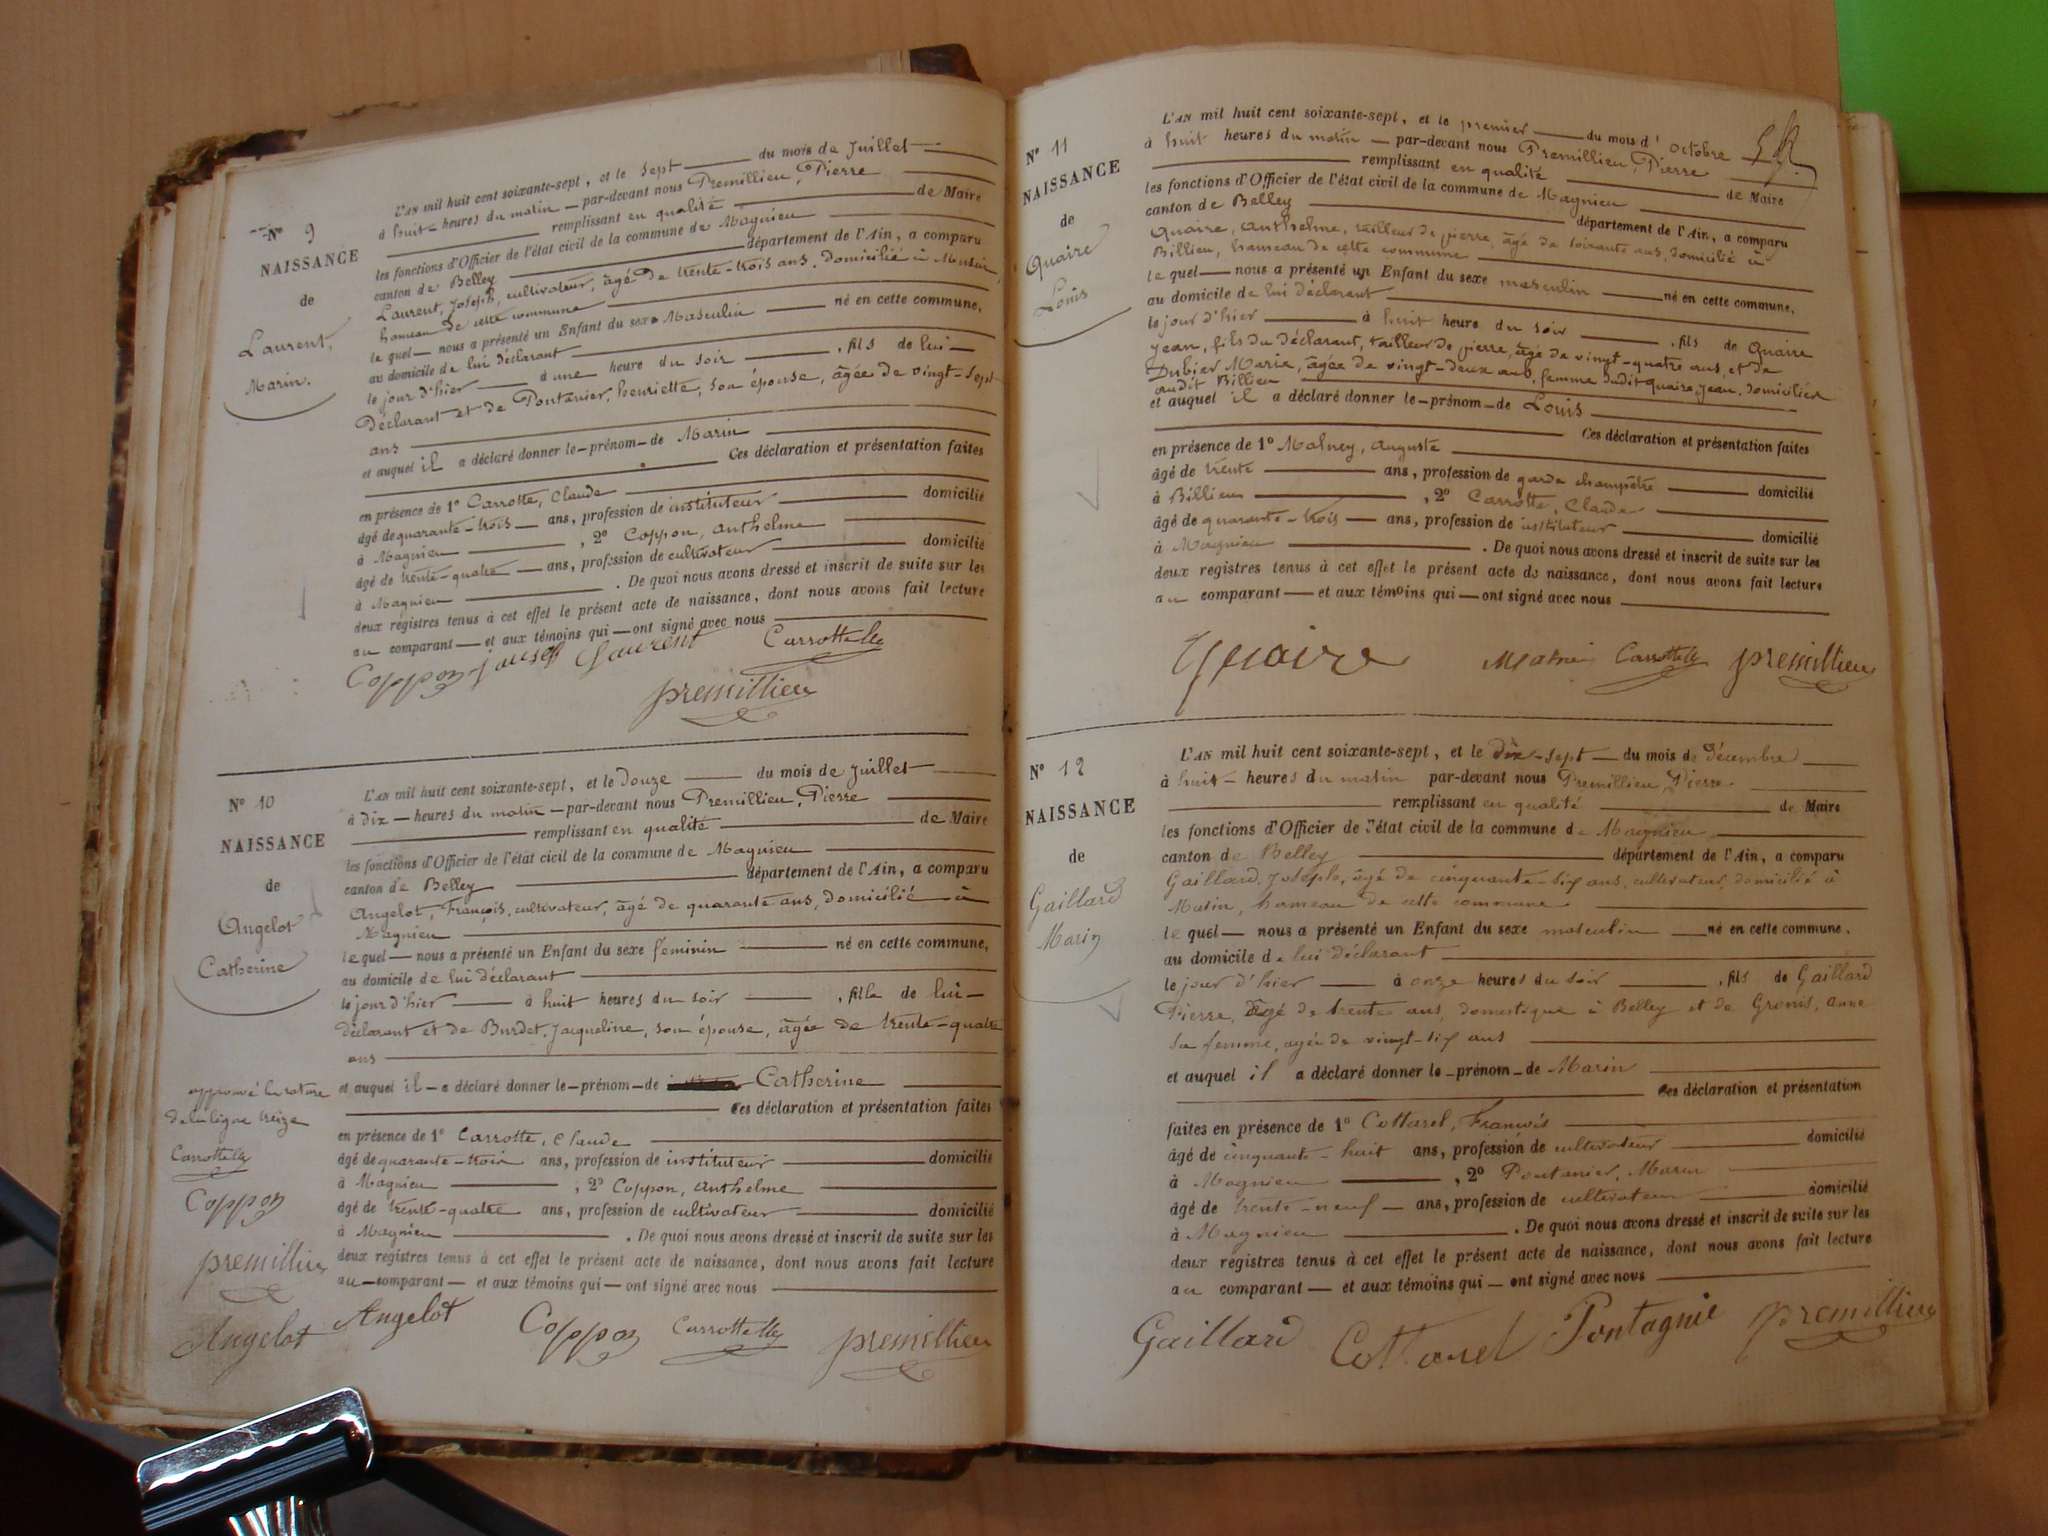 N° 9
NAISSANCE
de
Laurent,
Marin.
L'AN mil huit cent soixante-sept, et le sept du mois de Juillet
à huit heures du matin par-devant nous Premillieu, Pierre
remplissant en qualité de Maire
les fonctions d'Officier de l'état civil de la commune de Magnieu
canton de Belley département de l'Ain, a comparu
Laurent, Joseph, cultivateur, âgé de trente-trois ans, domicilié à Musin,
hameau de cette commune
lequel nous a présenté un Enfant du sexe Masculin né en cette commune,
au domicile de lui déclarant
le jour d'hier à une heure du soir , fils de lui
Déclarant et de Pontanier, henriette, son épouse, âgée de vingt-sept
ans
et auquel il a déclaré donner le prénom de Marin
Ces déclaration et présentation faites
en présence de 1° Carrotte, Claude
âgé de quarante-trois ans, profession de instituteur domicilié
à Magnieu , 2° Coppon, anthelme
âgé de trente-quatre ans, profession de cultivateur domicilié
à Magnieu . De quoi nous avons dressé et inscrit de suite sur les
deux registres tenus à cet effet le présent acte de naissance, dont nous avons fait lecture
au comparant et aux témoins qui ont signé avec nous
Coppon Laurent Carrotte
premillieu
N° 10
NAISSANCE
de
Angelot
Catherine
L'AN mil huit cent soixante-sept, et le Douze du mois de Juillet
à Dix heures du matin par-devant nous Premillieu, Pierre
remplissant en qualité de Maire
les fonctions d'Officier de l'état civil de la commune de Magnieu
canton de Belley département de l'Ain, a comparu
Angelot, François, cultivateur, âgé de quarante ans, domicilié à
Magnieu
lequel nous a présenté un Enfant du sexe féminin né en cette commune,
au domicile de lui déclarant
le jour d'hier à huit heures du soir , fille de lui
déclarant et de Burdet, Jacqueline, son épouse, âgée de trente-quatre
ans
et auquel il a déclaré donner le prénom de Catherine
Ces déclaration et présentation faites
en présence de 1° Carrotte, Claude
âgé de quarante-trois ans, profession de instituteur domicilié
à Magnieu , 2° Coppon, anthelme
âgé de trente-quatre ans, profession de cultivateur domicilié
à Magnieu . De quoi nous avons dressé et inscrit de suite sur les
deux registres tenus à cet effet le présent acte de naissance, dont nous avons fait lecture
au comparant et aux témoins qui ont signé avec nous
approuvé la rature
de la ligne treize
Carrotte
Coppon
premillieu
Angelot Angelot Coppon Carrotte premillieu
N° 11
NAISSANCE
de
Quaire
Louis
L'AN mil huit cent soixante-sept, et le premier du mois d'octobre
à huit heures du matin par-devant nous Premillieu, Pierre
remplissant en qualité de Maire
les fonctions d'Officier de l'état civil de la commune de Magnieu
canton de Belley département de l'Ain, a comparu
Quaire, anthelme, tailleur de pierre, âgé de soixante ans, domicilié à
Billieu, hameau de cette commune
lequel nous a présenté un Enfant du sexe masculin né en cette commune,
au domicile de lui déclarant
le jour d'hier à huit heure du soir , fils de Quaire
Jean, fils du déclarant, tailleur de pierre, âgé de vingt-quatre ans, et de
Dubier Marie, âgée de vingt-deux ans, femme dudit quaire, Jean, domiciliés
audit Billieu
et auquel il a déclaré donner le prénom de Louis
Ces déclaration et présentation faites
en présence de 1° Malney, auguste
âgé de trente ans, profession de garde champêtre domicilié
à Billieu , 2° Carrotte, Claude
âgé de quarante-trois ans, profession de instituteur domicilié
à Magnieu . De quoi nous avons dressé et inscrit de suite sur les
deux registres tenus à cet effet le présent acte de naissance, dont nous avons fait lecture
au comparant et aux témoins qui ont signé avec nous
Quaire Carrotte premillieu
N° 12
NAISSANCE
de
Gaillard
Marin
L'AN mil huit cent soixante-sept, et le dix-sept du mois de décembre
à huit heures du matin par-devant nous Premillieu, Pierre
remplissant en qualité de Maire
les fonctions d'Officier de l'état civil de la commune de Magnieu
canton de Belley département de l'Ain, a comparu
Gaillard, Joseph, âgé de cinquante-six ans, cultivateur, domicilié à
Musin, hameau de cette commune
lequel nous a présenté un Enfant du sexe masculin né en cette commune,
au domicile de lui déclarant
le jour d'hier à onze heures du soir , fils de Gaillard
Pierre, âgé de trente ans, domestique à Belley et de anne
sa femme, agée de vingt-six ans
et auquel il a déclaré donner le prénom de Marin
Ces déclaration et présentation
faites en présence de 1° Cottarel, François
âgé de cinquante-huit ans, profession de cultivateur domicilié
à Magnieu , 2° Pontanier, Marin
âgé de trente-neuf ans, profession de cultivateur domicilié
à Magnieu . De quoi nous avons dressé et inscrit de suite sur les
deux registres tenus à cet effet le présent acte de naissance, dont nous avons fait lecture
au comparant et aux témoins qui ont signé avec nous
Gaillard Cottarel Pontagnie premillieu